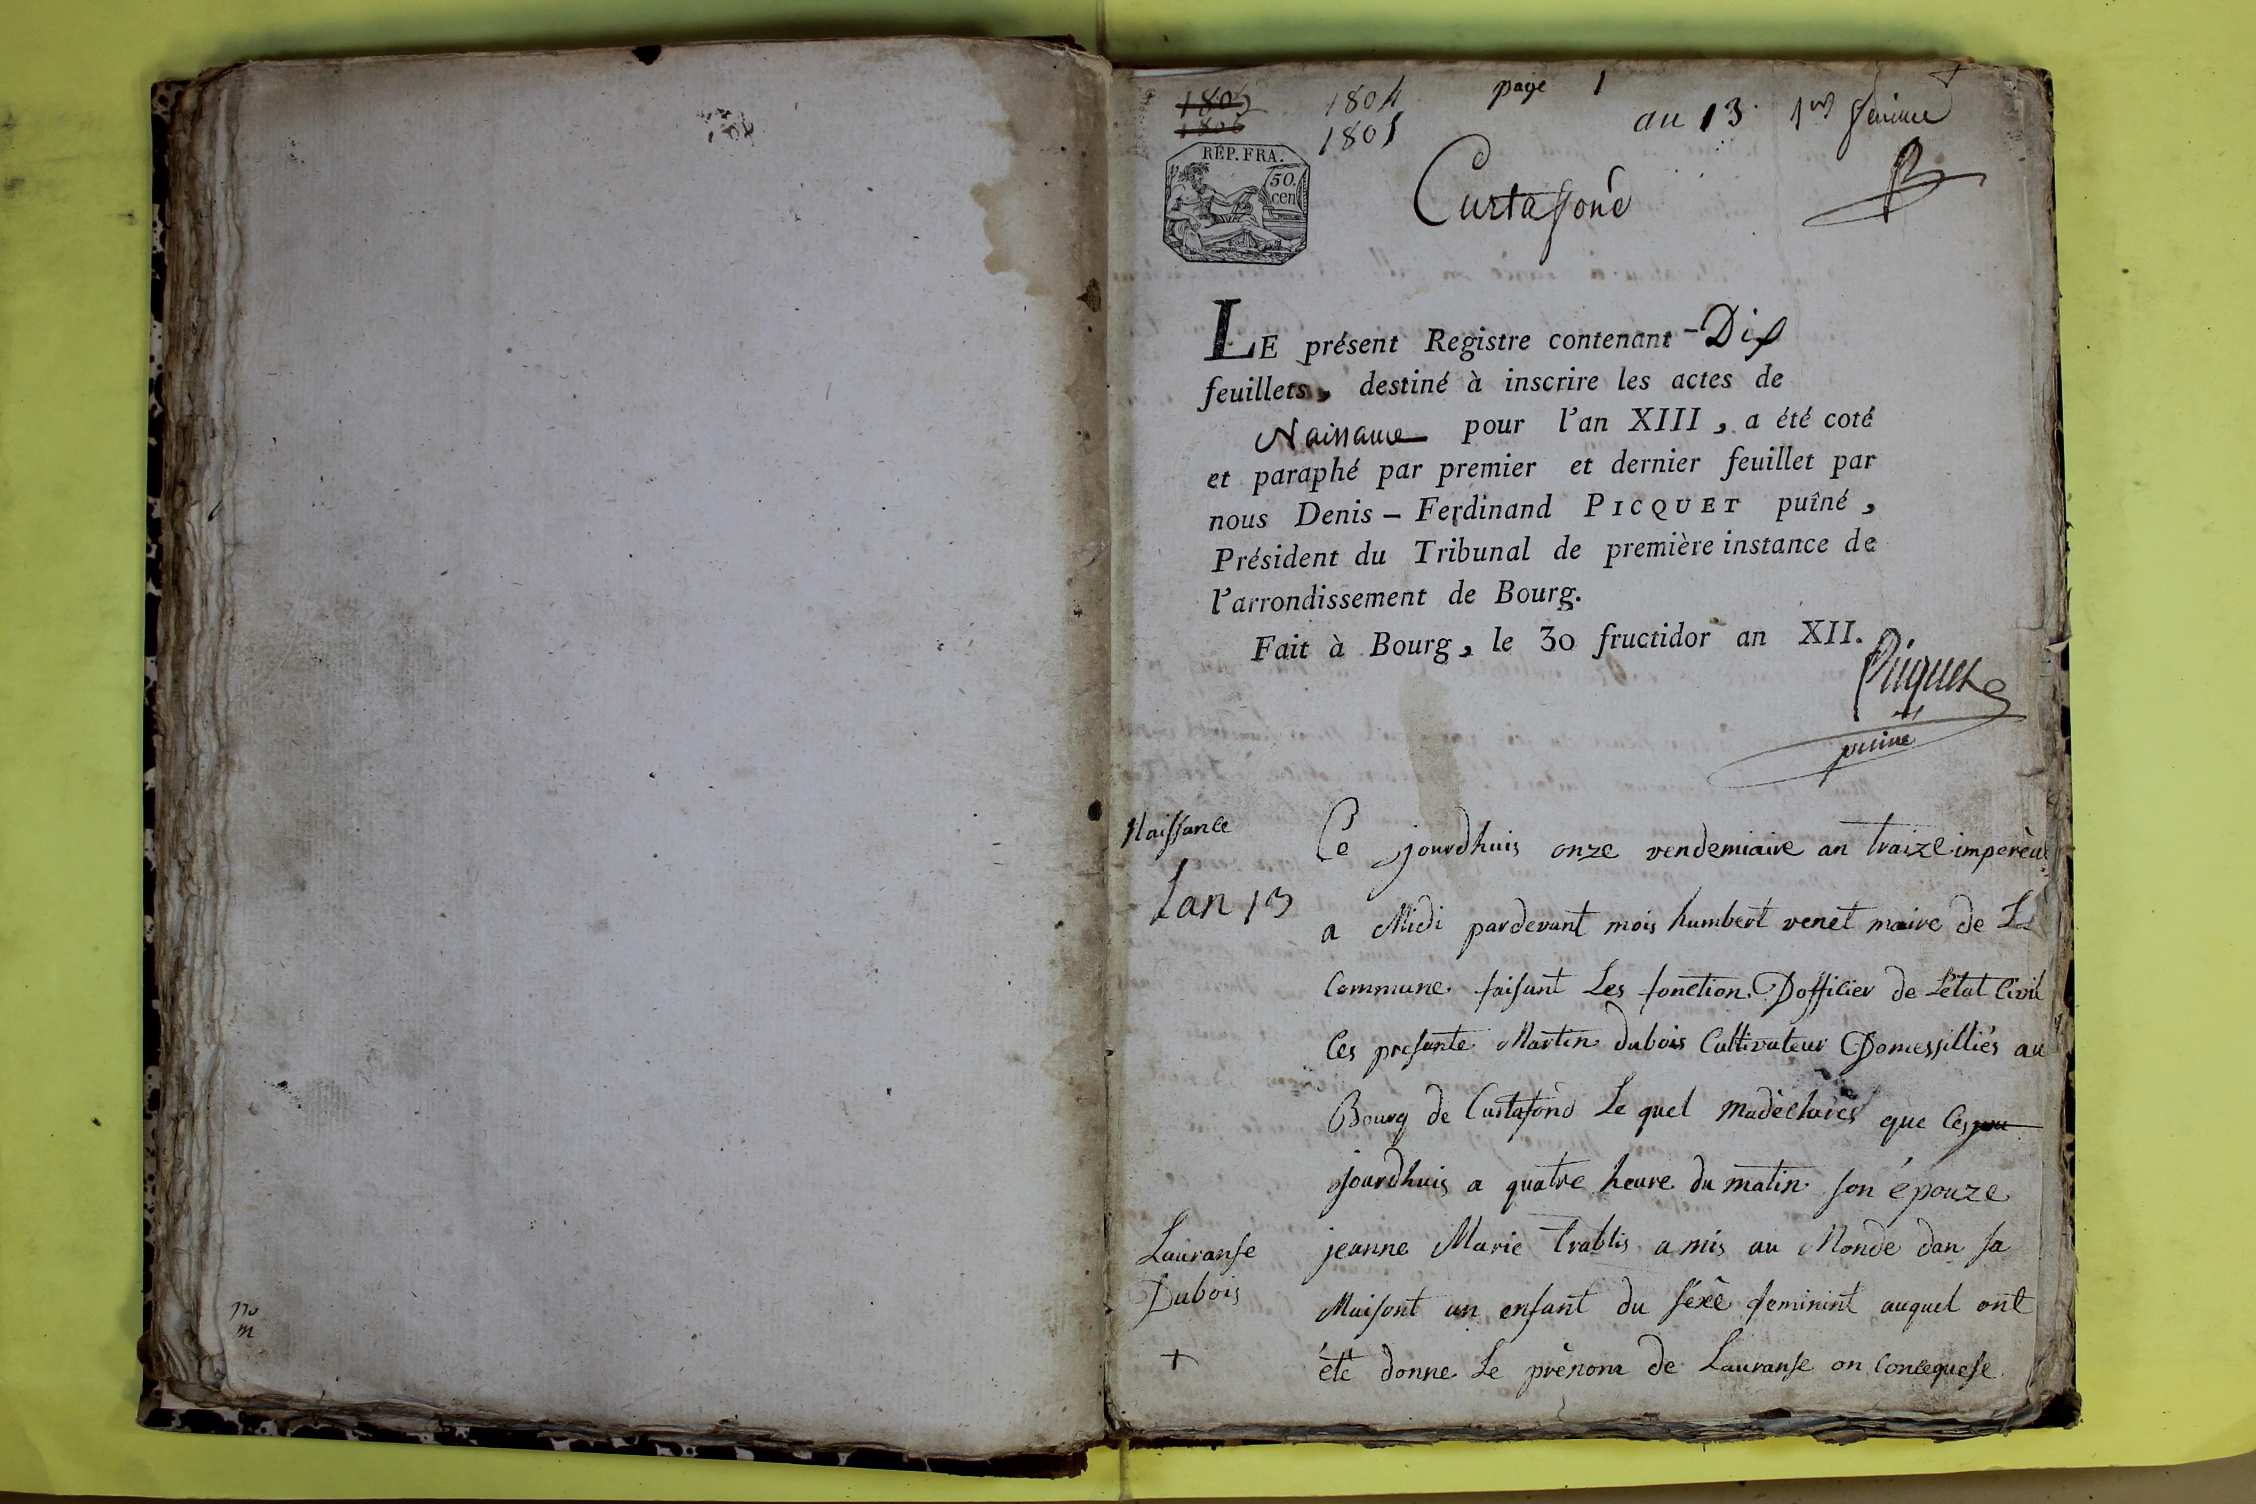 page 1
1805 1804
1806 1805
an 13. 1er feuillet
RÉP. FRA.
50.
cen
Curtafond
LE présent Registre contenant - Dix
feuillets, destiné à inscrire les actes de
Naissance pour l'an XIII, a été coté
et paraphé par premier et dernier feuillet par
nous Denis - Ferdinand PICQUET puîné,
Président du Tribunal de première instance de
l'arrondissement de Bourg.
Fait à Bourg, le 30 fructidor an XII.
Picquet
puiné
Naissance
Lan 13
Ce jourdhuis onze vendemiaire an traize
a Midi pardevant mois humbert venet maire de La
Commune faisant Les fonction Dofficier de Létat Civil
Ces presante Martin dubois Cultivateur Domessilliés au
Bourg de Curtafond Le quel madèclarés que Ces
jourdhuis a quatre heure du matin son épouze
jeanne Marie trablis a mis au Monde dan sa
Maisont un enfant du séxe feminint auquel ont
été donne Le prènom de Lauranse on Concequese
Lauranse
Dubois
+
no
m